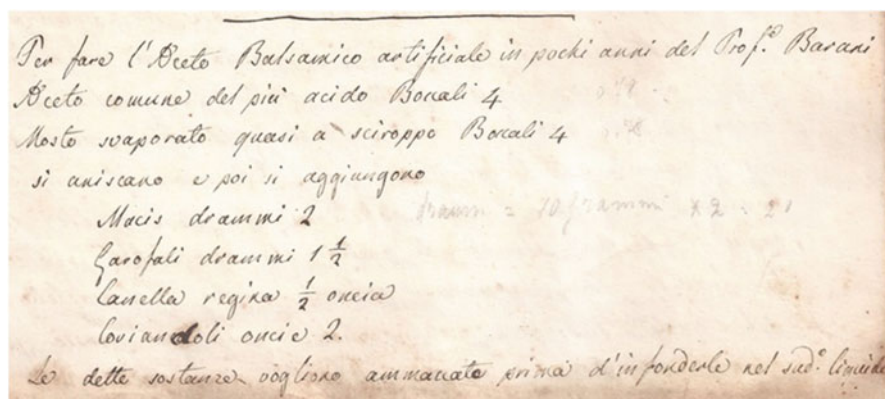 Per fare l'Aceto Balsamico artificiale in pochi anni del Prof.e Barani
Aceto comune del più acido Boccali 4
Mosto svaporato quasi a sciroppo Boccali 4
si uniscano e poi si aggiungono
Macis drammi 2
Garofali drammi 1 1/2
Canella regina 1/2 oncia
Coriandoli oncie 2.
Le dette sostanze vogliono ammacate prima d'infonderle nel sud.o liquido